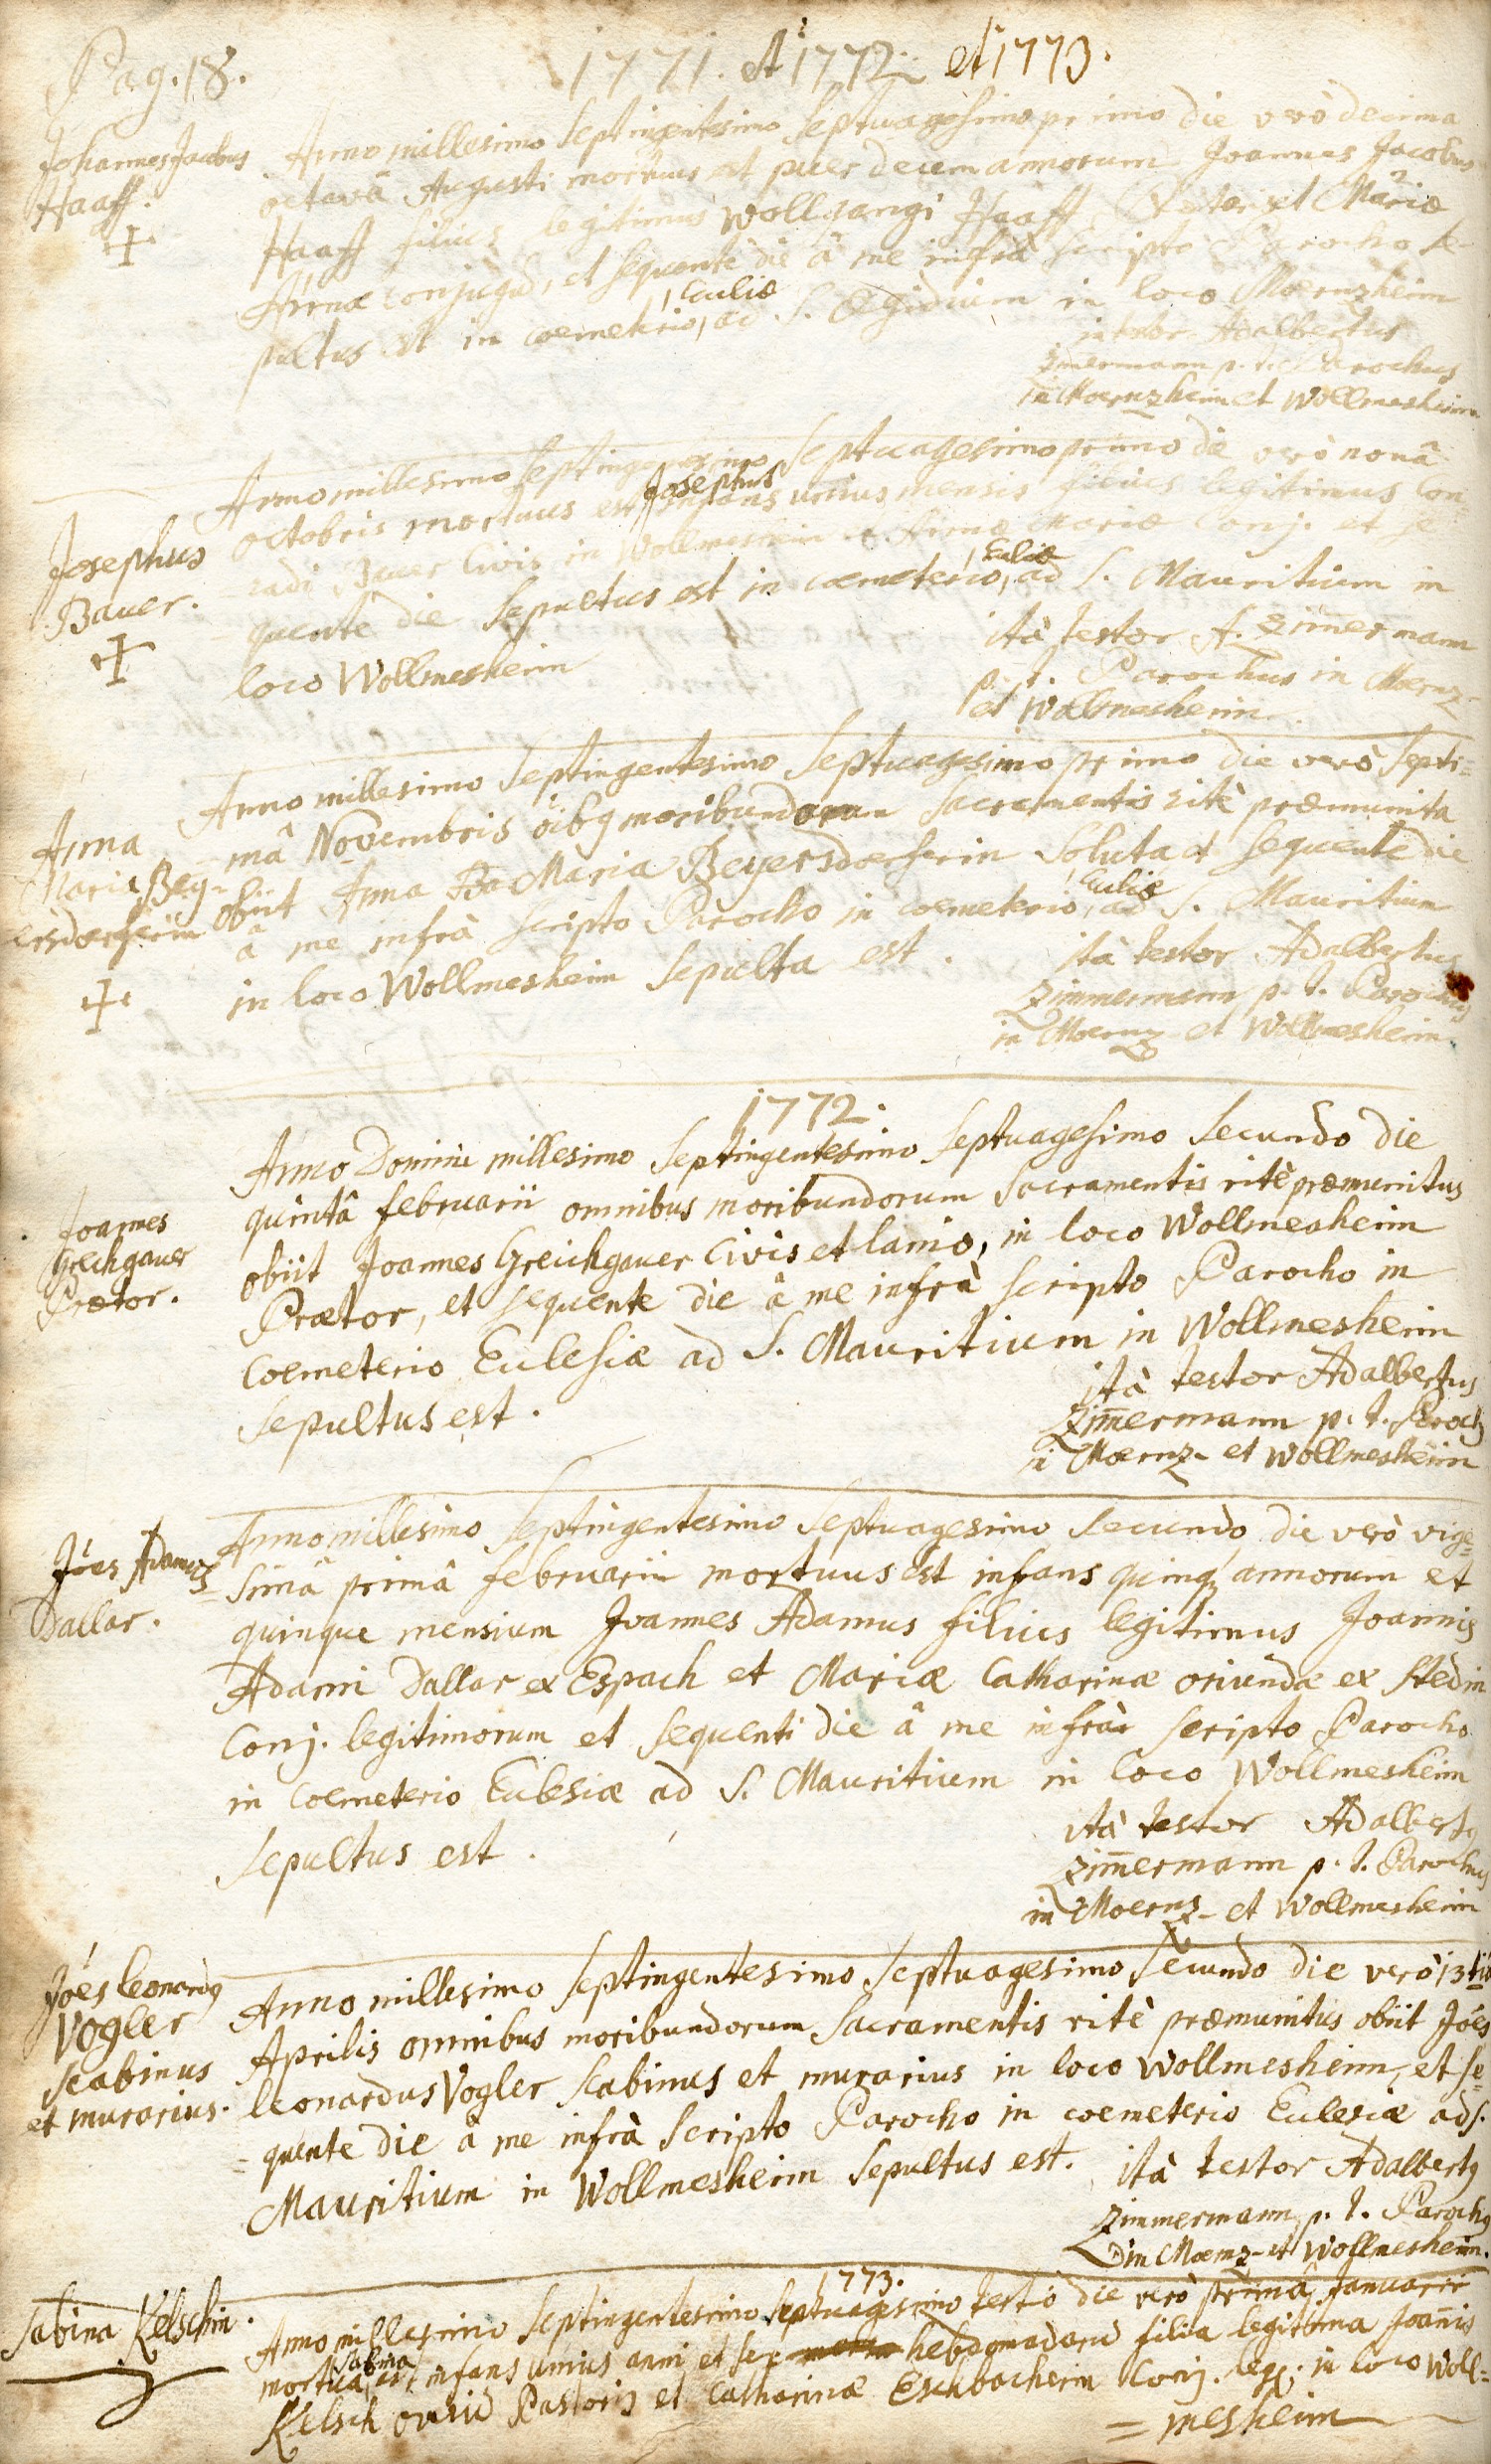 Pag. 18.
1771. et 1772. et 1773.
Johannes Jacobus
Haaff.
Anno millesimo septingentesimo septuagesimo primo die verò decima
octavâ Augusti mortuus est puer decem annorum Joannes Jacobus
Haaff filius legitimus Wollgangi Haaff et Mariæ
Annæ conjugum, et sequente die â me infrà scripto Parocho se-
pultus est in coemeterio Eccliæ ad S. Ægidium in loco Moernzheim
ita testor Adalbertus
Zimermann p. t. Parochus
in Moernzheim et Wollmesheim
Josephus
Bauer.
Anno millesimo septingentesimo septuagesimo primo die verò nonâ
octobris mortuus est Josephus infans unius mensis filius legitimus Con-
radi Bauer Civis in Wollmesheim et Annæ Mariæ Conj. et se-
quente die sepultus est in coemeterio Eccliæ ad S. Mauritium in
loco Wollmesheim
ità testor A. Zimmermann
p. t. Parochus in Moernz-
et Wollmesheim.
Anna
Maria Bey-
ersdoerferin
Anno millesimo septingentesimo septuagesimo primo die verò septi=
mâ Novembris oibq moribundorum sacramentis ritè præmunita
obiit Anna Maria Beyersdoerferin soluta et sequente die
â me infrà scripto Parocho in coemeterio Eccliæ ad S. Mauritium
in loco Wollmesheim sepulta est.
ità testor Adalbertus
Zimmermann p. t. Parochus
in Moernz- et Wollmesheim
1772.
Joannes
Greichgauer
Prætor.
Anno Domini millesimo septingentesimo septuagesimo secundo die
quintâ februarii omnibus moribundorum sacramentis ritè præmunitus
obiit Joannes Greichgauer Civis et lanio, in loco Wollmesheim
Prætor, et sequente die â me infrà scripto Parocho in
Coemeterio Eclesiæ ad S. Mauritium in Wollmesheim
sepultus est.
ità testor Adalbertus
Zim̄ermann p. t. Paroch9
in Moernz- et Wollmesheim
Jões Adamus
Dallar.
Anno millesimo septingentesimo septuagesimo secundo die verò vige=
=simâ primâ februarii mortuus est infans quinq annorum et
quinque mensium Joannes Adamus filius legitimus Joannis
Adami Dallar ex Espach et Mariæ Catharinæ oriundæ ex Stedin
Conj. legitimorum et sequenti die â me infrà scripto Parocho
in Coemeterio Eclesiæ ad S. Mauritium in loco Wollmesheim
sepultus est.
ità testor Adalbert9
Zim̄ermann p. t. Parochus
in Moernz- et Wollmesheim
Jões leonard9
Vogler
scabinus
et murarius.
Anno millesimo septingentesimo septuagesimo secundo die verò 13tiâ
Aprilis omnibus moribundorum sacramentis ritè præmunitus obiit Jões
leonardus Vogler scabinus et murarius in loco Wollmesheim, et se=
=quente die â me infrà scripto Parocho in coemeterio Eclesiæ ad S.
Mauritium in Wollmesheim sepultus est.
ità testor Adalbert9
Zimmermann p. t. Paroch9
in Moernz- et Wollmesheim.
1773.
Sabina Kelschin.
Anno millesimo septingentesimo septuagesimo tertio die verò primâ Januarii
mortua est Sabina infans unius anni et sex hebdomadarû filia legitima Joan̄is
Kelsch oviû Pastoris et Catharinæ Eschbacherin Conj. leg: in loco Woll=
=mesheim